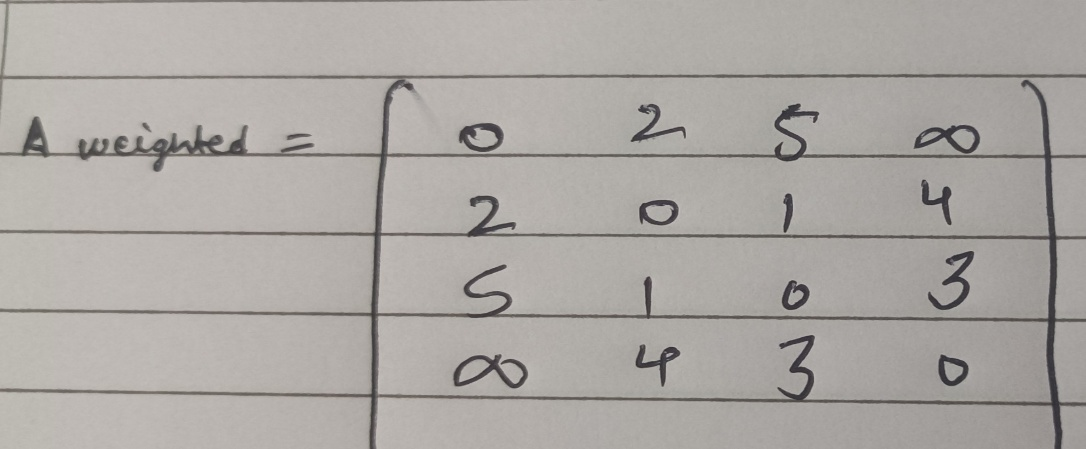 A weighted = 0 2 5 ∞
2 0 1 4
5 1 0 3
∞ 4 3 0